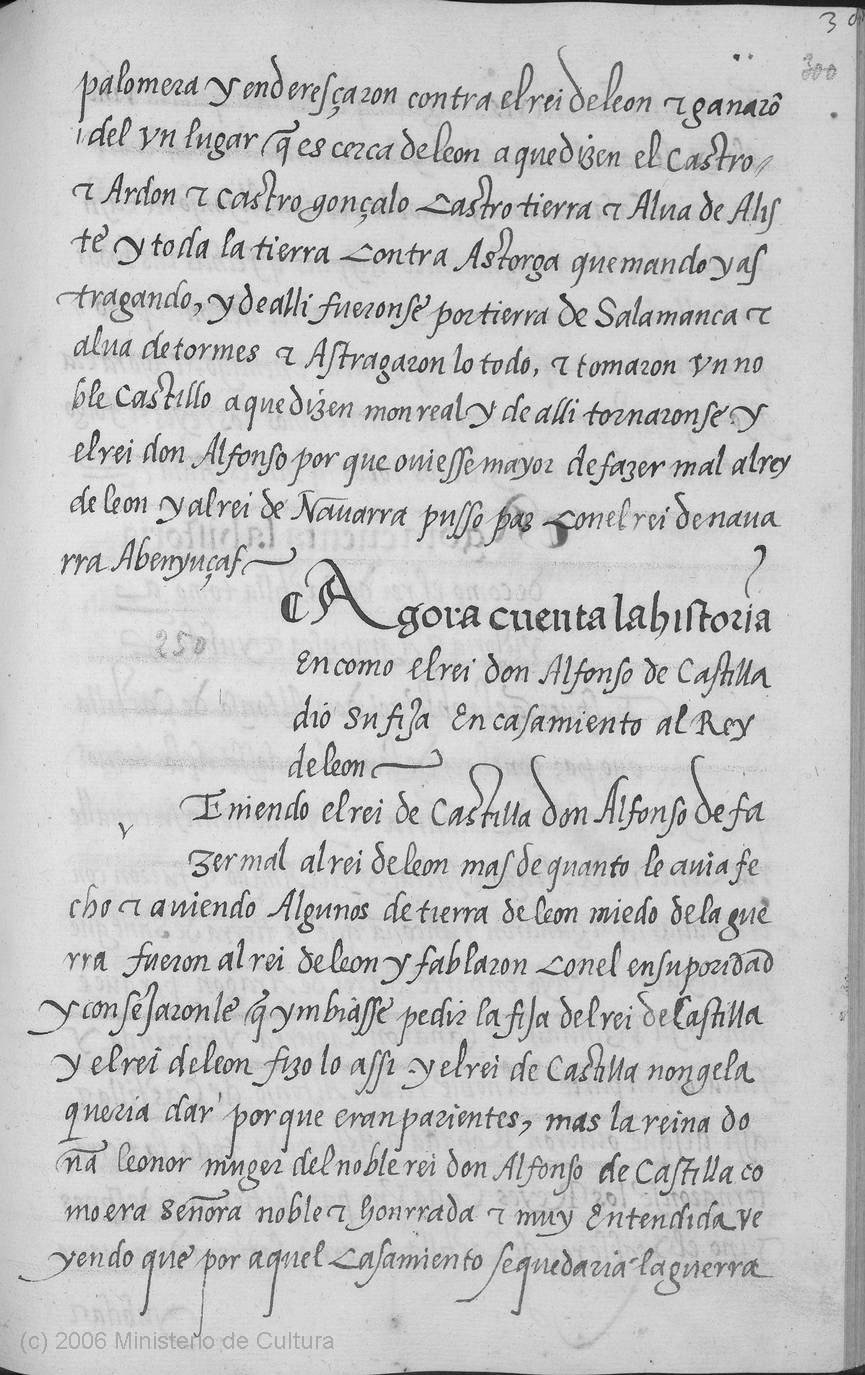 3
300
palomera y enderesçaron contra el rei de leon ⁊ ganarõ
i del vn lugar q̃ es cerca de leon a que dizen el Castro
⁊ Ardon ⁊ castro gonçalo Castro tierra ⁊ Alua de Alis
te y toda la tierra Contra Astorga quemando y as
tragando, y de alli fueronse por tierra de Salamanca ⁊
alua de tormes ⁊ Astragaron lo todo, ⁊ tomaron vn no
ble Castillo a que dizen monreal y de alli tornaronse. y
el rei don Alfonso por que ouiesse mayor de fazer mal al rey
de leon y al rei de Nauarra pusso paz Con el rei de naua
rra Abenyuçaf
250
Agora cuenta la historia
En como el rei don Alfonso de Castilla
dio su fija En casamiento al Rey
de leon
Y
Teniendo el rei de Castilla don Alfonso de fa
zer mal al rei de leon mas de quanto le auia fe
cho ⁊ auiendo Algunos de tierra de leon miedo de la gue
rra fueron al rei de leon y fablaron Con el en suporidad
y consejaronle q̃ ymbiasse pedir la fija del rei de Castilla
y el rei de leon fizo lo assi. y el rei de Castilla non gela
queria dar por que eran parientes, mas la reina do
ña leonor muger del noble rei don Alfonso de Castilla co
mo era Señora noble ⁊ honrrada ⁊ muy Entendida ve
yendo que por aquel Casamiento se quedaria la guerra
(c) 2006 Ministerio de Cultura